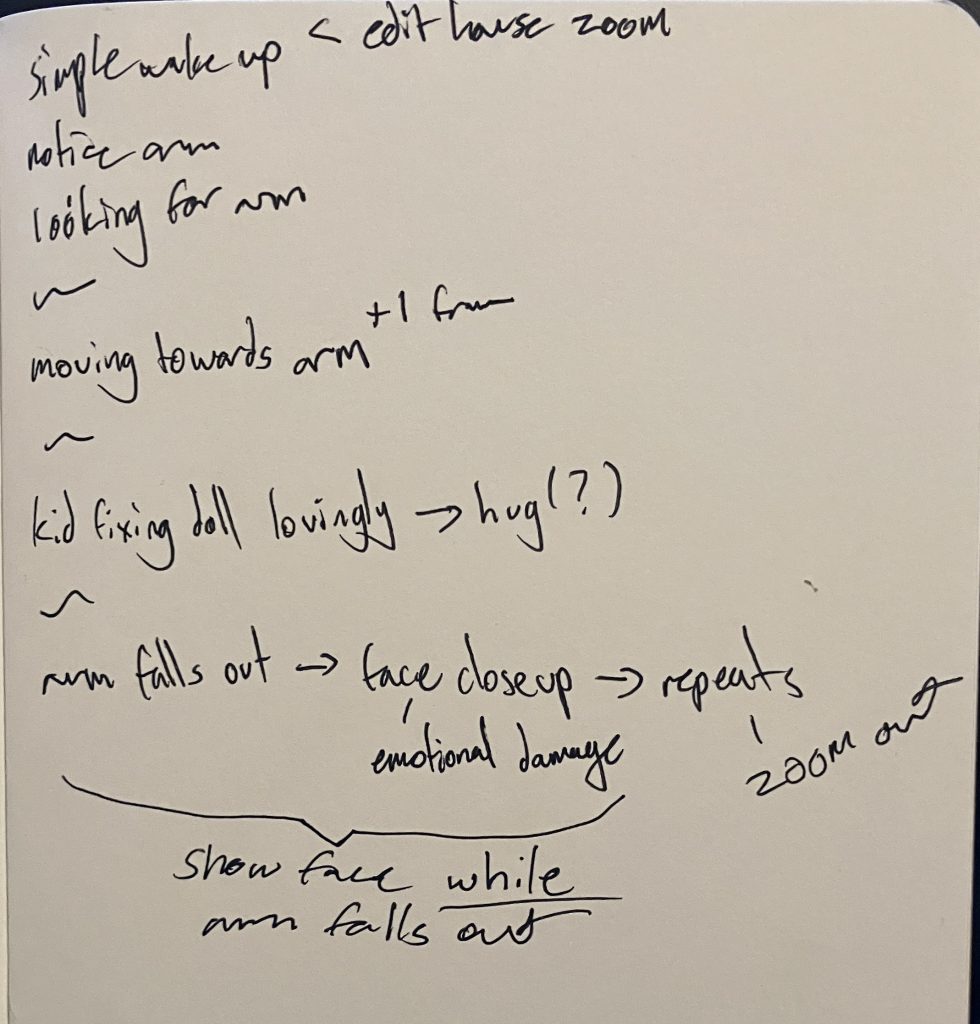 simple wake up < edit house zoom
notice arm
looking for arm
~
moving towards arm +1 fram
~
kid fixing doll lovingly → hug(?)
~
arm falls out → face closeup → repeats
emotional damage
zoom out
show face while
arm falls out